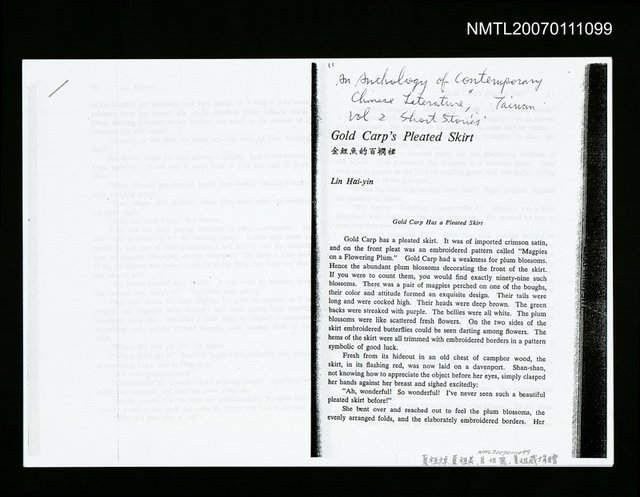 NMTL20070111099
"An Anthology of Contemporary
Chinese Literature," Taiwan
Vol 2 Short Stories
Gold Carp's Pleated Skirt
金鯉魚的百襇裙
Lin Hai-yin
Gold Carp Has a Pleated Skirt
Gold Carp has a pleated skirt. It was of imported crimson satin,
and on the front pleat was an embroidered pattern called "Magpies
on a Flowering Plum." Gold Carp had a weakness for plum blossoms.
Hence the abundant plum blossoms decorating the front of the skirt.
If you were to count them, you would find exactly ninety-nine such
blossoms. There was a pair of magpies perched on one of the boughs,
their color and attitude formed an exquisite design. Their tails were
long and were cocked high. Their heads were deep brown. The green
backs were streaked with purple. The bellies were all white. The plum
blossoms were like scattered fresh flowers. On the two sides of the
skirt embroidered butterflies could be seen darting among flowers. The
hems of the skirt were all trimmed with embroidered borders in a pattern
symbolic of good luck.
Fresh from its hideout in an old chest of camphor wood, the
skirt, in its flashing red, was now laid on a davenport. Shan-shan,
not knowing how to appreciate the object before her eyes, simply clasped
her hands against her breast and sighed excitedly:
"Ah, wonderful! So wonderful! I've never seen such a beautiful
pleated skirt before!"
She bent over and reached out to feel the plum blossoms, the
evenly arranged folds, and the elaborately embroidered borders. Her
NMTL20070111099
夏祖焯 夏祖美 夏祖麗 夏祖葳捐贈